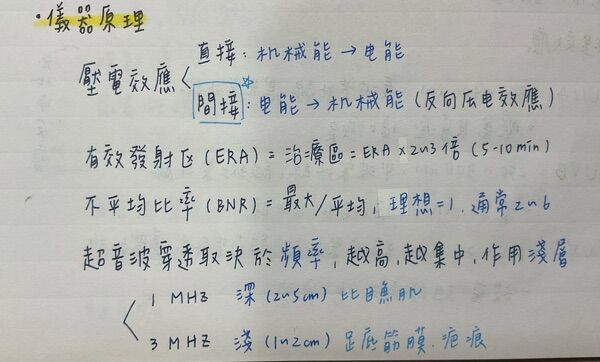 ·儀器原理
直接：机械能→电能
壓電效應
間接：电能→机械能(反向压电效應)
有效發射区(ERA)=治療區=ERA×2~3倍(5-10min)
不平均比率(BNR)=最大/平均，理想=1，通常2~6
超音波穿透取決於頻率，越高，越集中，作用淺層
1 MHz 深(2~5cm) 比目魚肌
3 MHz 淺(1~2cm) 足底筋膜、疤痕